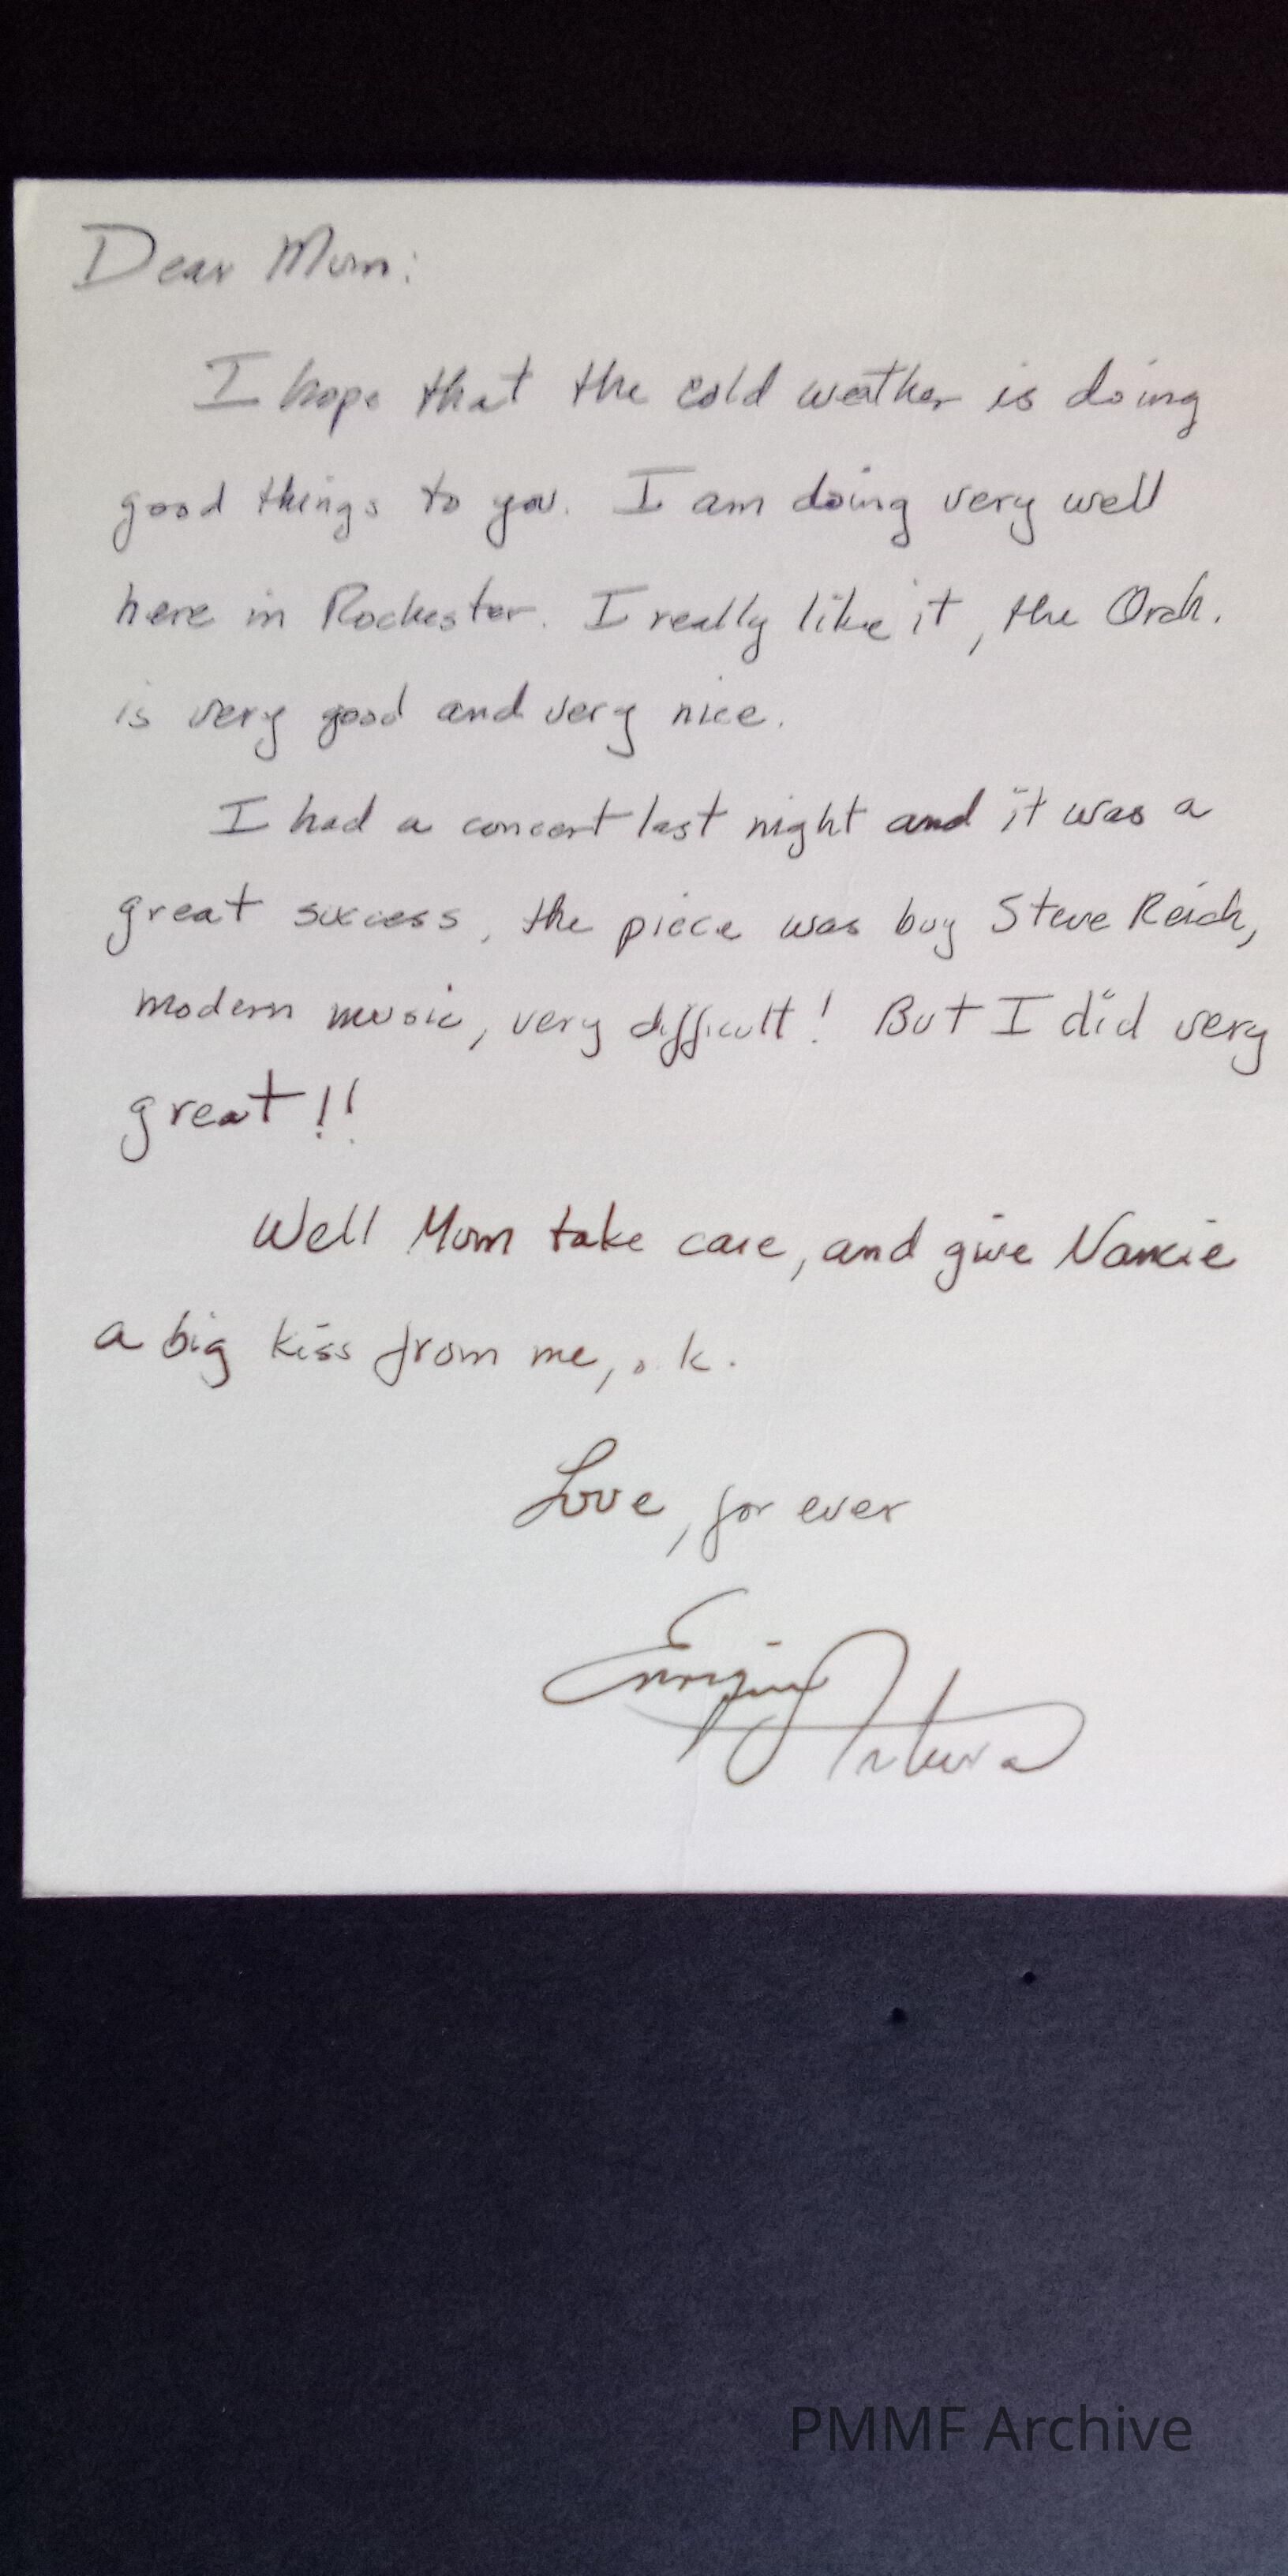 Dear Mom:
I hope that the cold weather is doing
good things to you. I am doing very well
here in Rochester. I really like it, the Orch.
is very good and very nice.
I had a concert last night and it was a
great success, the piece was buy Steve Reich,
modern music, very difficult! But I did very
great!!
Well Mom take care, and give Nancie
a big kiss from me, o.k.
Love, for ever
Enrique Arturo
PMMF Archive